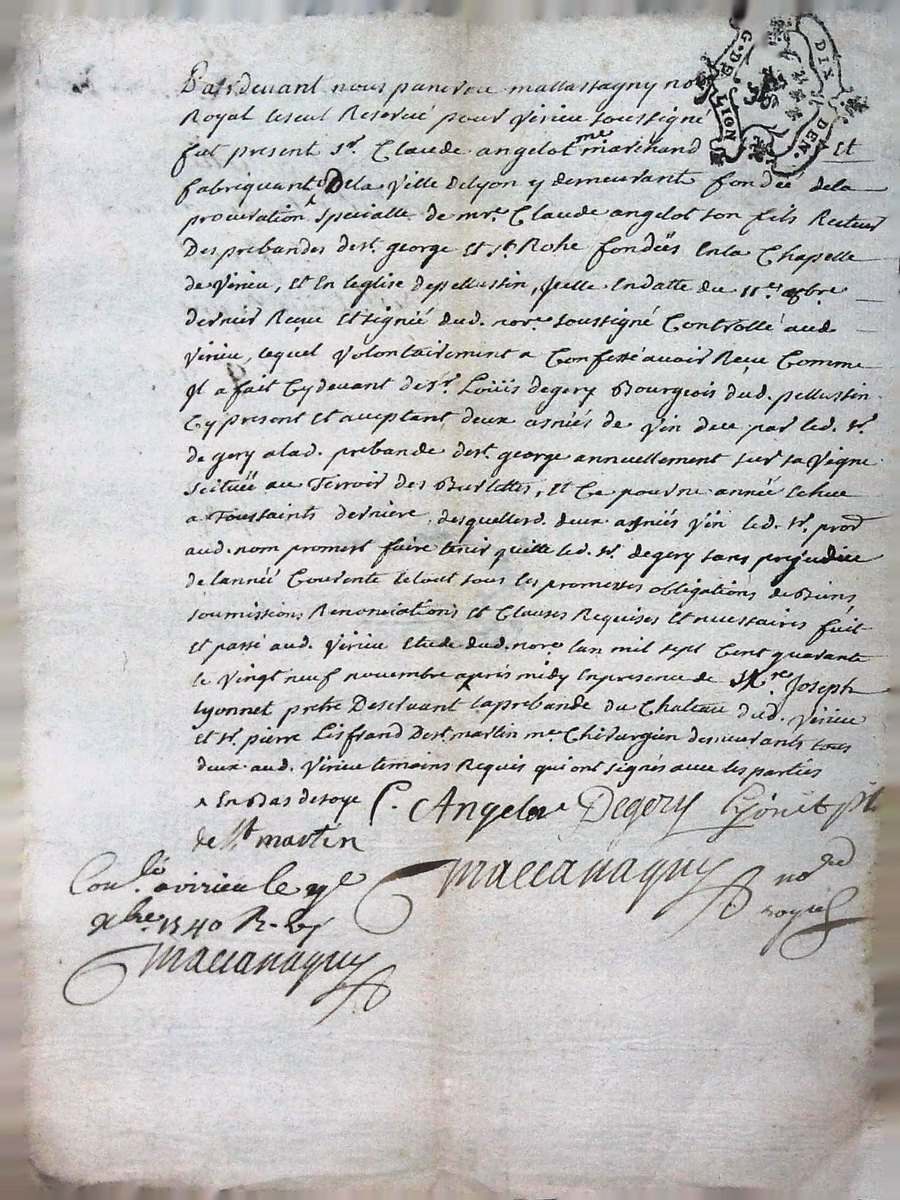 G. DE LION
DIX DEN.
Pardevant nous pancrace mattassagny no
Royal le seul Reservé pour Virieu soussigné
fut present Sr. Claude angelot me marchand Et
fabriquant De la Ville de lyon y demeurant fondée dela
procuration specialle de mre. Claude angelot son fils Recteur
Des prebandes de st. george et st. Rohe fondëés En la Chapelle
de Virieu, et En leglise de pellussin, Icelle En datte du 11e. 8bre
dernier Reçue Et signée dud. nore. soussigné Controllé aud
Virieu, lequel volontairement a Confessé avoir Reçu Comme
Il a fait Cy devant de sr. Loüis degery Bourgeois dud. pellussin
Cy present et acceptant deux asnéés de vin deu par led. sr.
de gery a lad. prebande de st. george annuellement sur sa vigne
scituéë au Terroir des Burlettes, et Ce pour une année Echue
a Toussaints derniere, desquelles d. deux asnéés vin led. sr. procr
aud. nom promest faire tenir quitte led. sr. degery sans prejudice
de lannéé Courente le tout sous les promesses obligations de Biens
soumissions Renonciations et Clauses Requises et necessaires fait
et passé aud. Virieu etude dud. nore. lan mil sept Cent quarante
le vingt neuf novembre apries midy En presence de Mre. Joseph
Lyonnet pretre Desservant la prebande du Chateau dud. Virieu
et sr. pierre Lisfrand de st. martin me. Chirurgien demeurants tous
deux aud. Virieu temoins Requis qui ont signés avec les parties
En Bas de soye C. Angelot Degery Lyonët ptr
de St martin
Maccanaguy no
royal
Conlé a virieu le
xbre 1740 R.
Maccanaguy